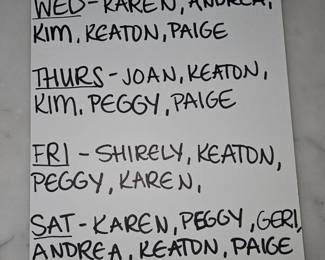 WED-KAREN, ANDREA,
KIM, KEATON, PAIGE
THURS-JOAN, KEATON,
KIM, PEGGY, PAIGE
FRI - SHIRELY, KEATON,
PEGGY, KAREN,
SAT-KAREN, PEGGY, GERI,
ANDREA, KEATON, PAIGE